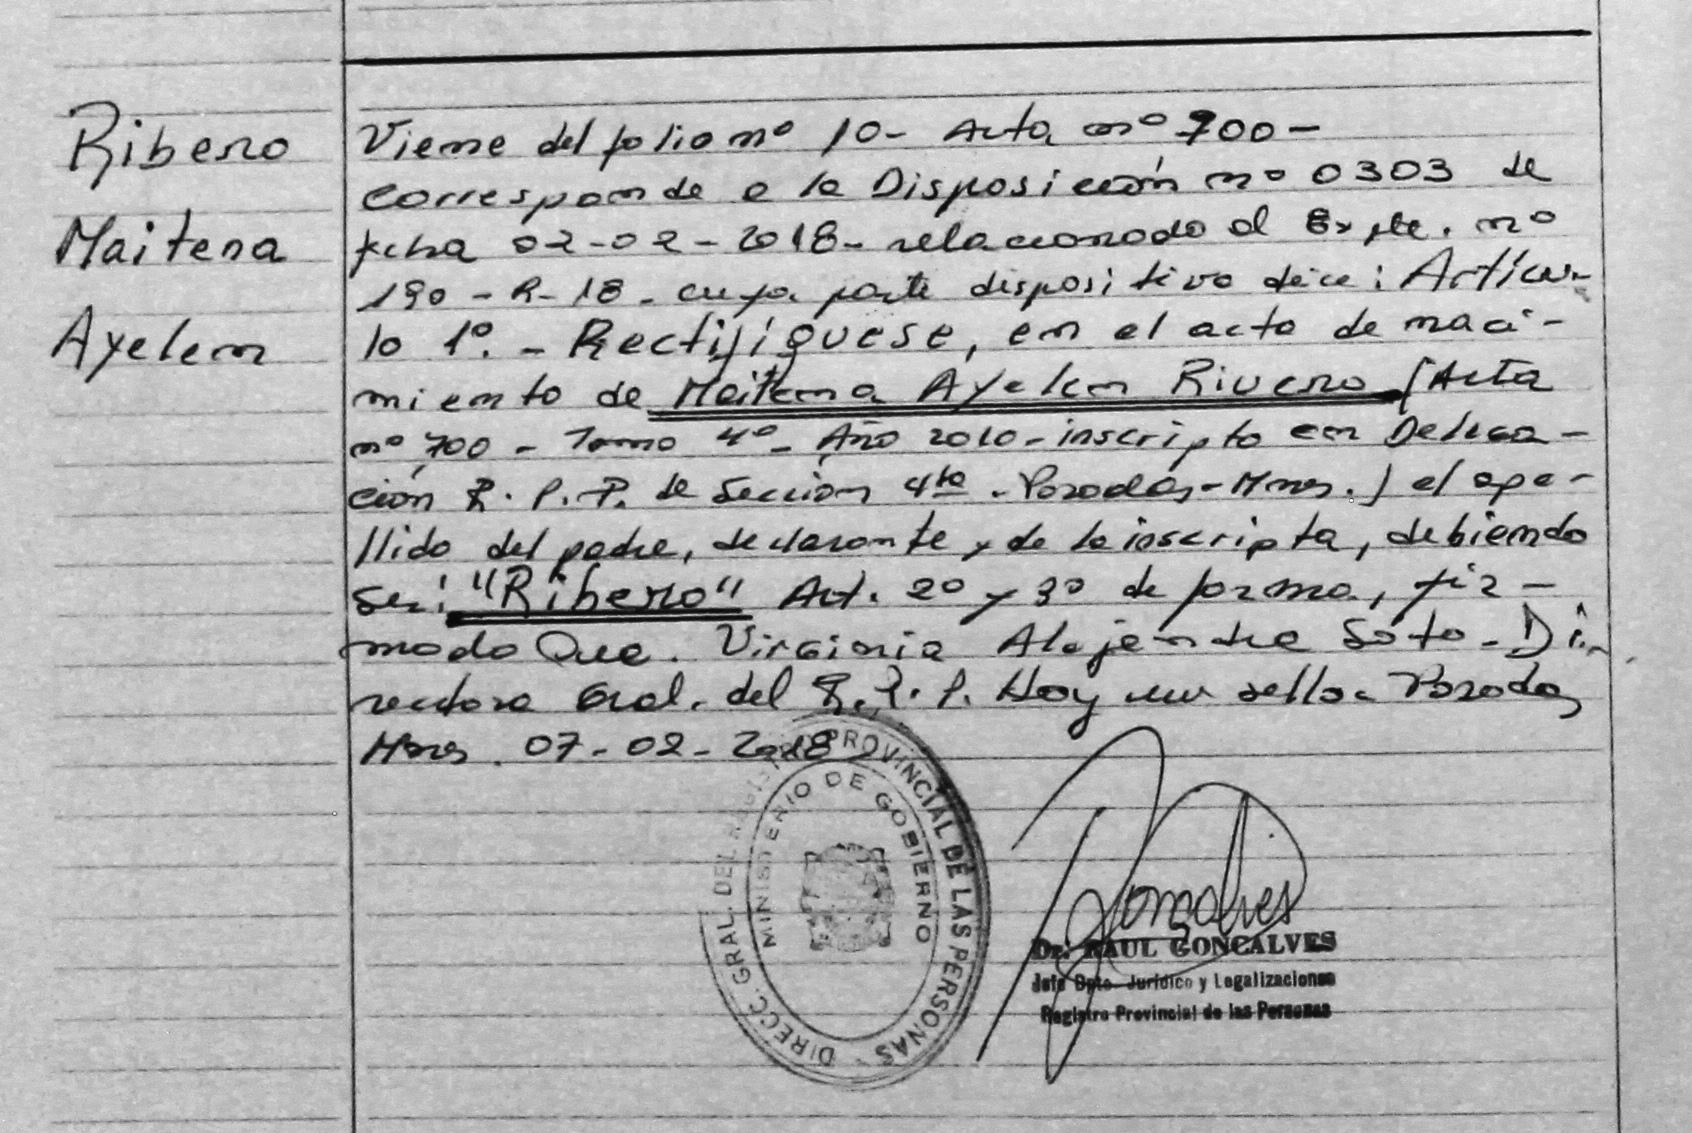 Ribero
Maitena
Ayelem
Viene del folio nº 10- Acta nº 700-
corresponde a la Disposición nº 0303 de
fecha 02-02-2018- relacionado al Expte. nº
190-R-18- cuya parte dispositiva dice: Artícu-
lo 1º.- Rectifíquese, en el acta de naci-
miento de Maitena Ayelem Rivero (Acta
nº 700 - Tomo 4º- Año 2010- inscripta en Delega-
ción R.P.P. de Sección 4ta - Posadas-Mnes.) el ape-
llido del padre, declarante y de la inscripta, debiendo
ser: "Ribero" Art. 2º y 3º de forma, fir-
mado Dra. Virginia Alejandra Soto - Di-
rectora Gral. del R.P.P. Hay un sello- Posadas
Mnes. 07-02-2018
DIRECC. GRAL. DEL REGISTRO PROVINCIAL DE LAS PERSONAS
MINISTERIO DE GOBIERNO
Gonçalves
Dr. RAUL GONCALVES
Jefe Dpto. Jurídico y Legalizaciones
Registro Provincial de las Personas